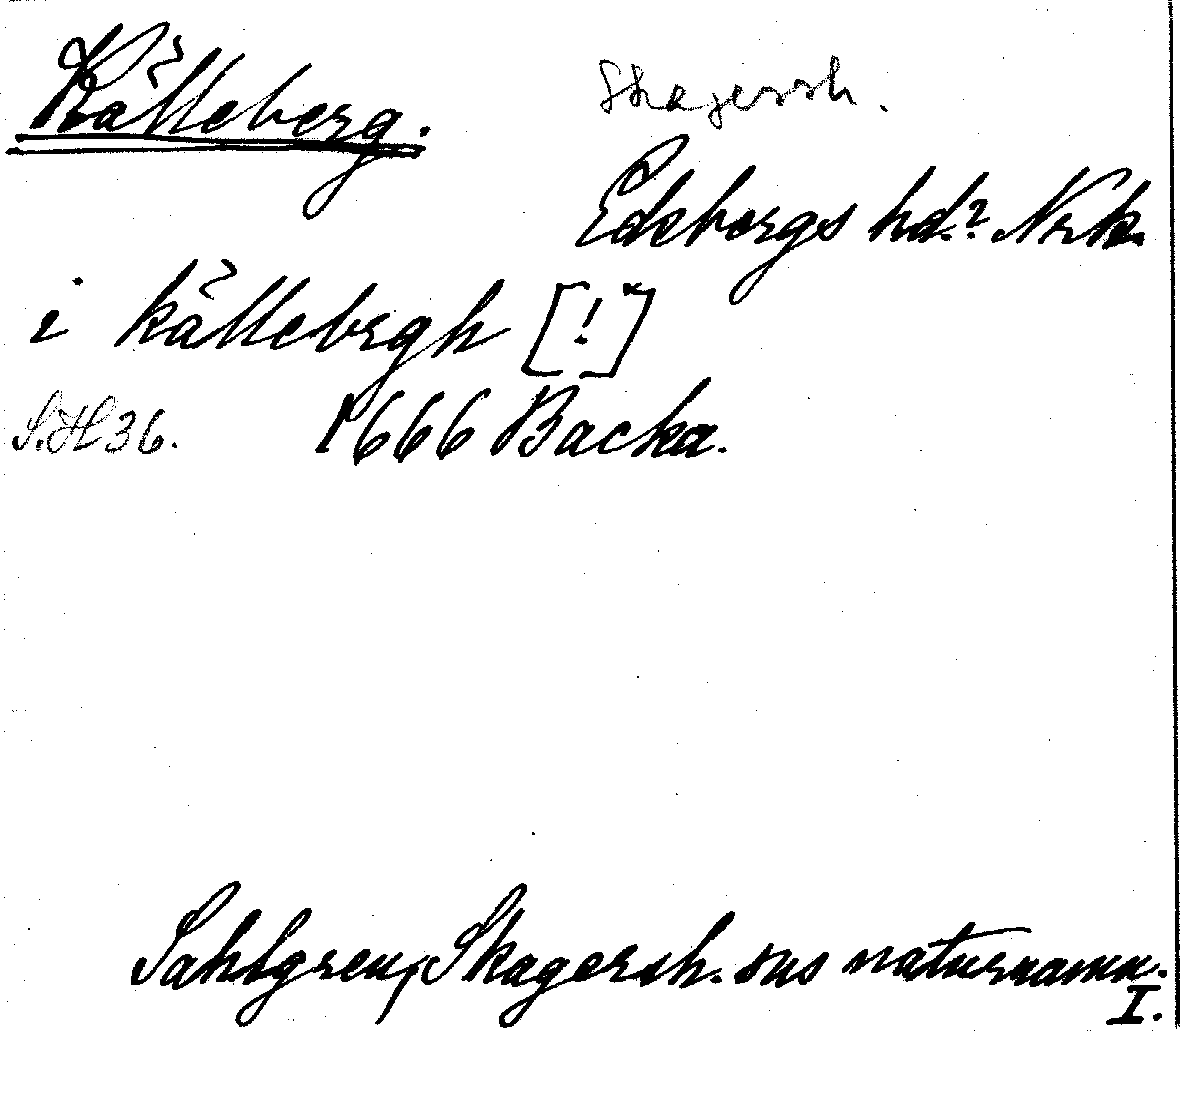 Källeberg.
Skagersh.
Edsbergs hd.? Nrk.
i källebrgh [!]
S.H 36. 1666 Backa.
Sahlgren, Skagersh. sns naturnamn.
I.